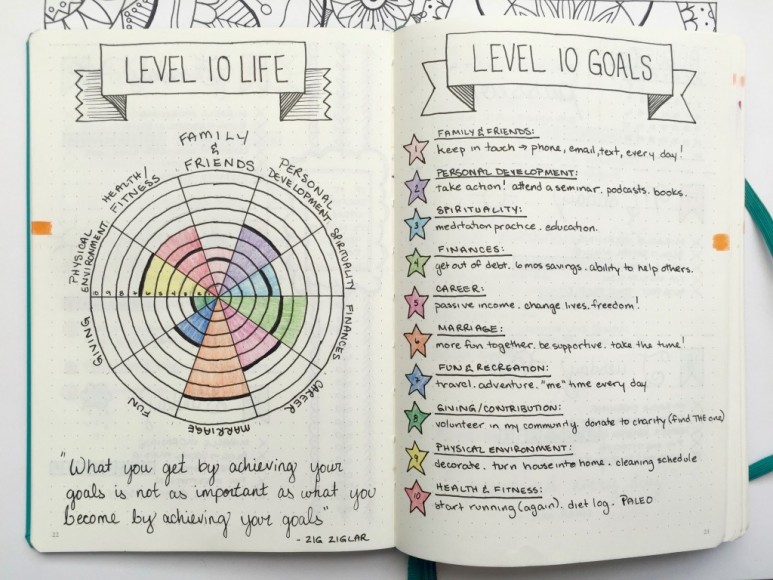 LEVEL 10 LIFE
FAMILY
&
FRIENDS
PERSONAL
DEVELOPMENT
SPIRITUALITY
FINANCES
CAREER
MARRIAGE
FUN
GIVING
PHYSICAL
ENVIRONMENT
HEALTH/
FITNESS
"What you get by achieving your
goals is not as important as what you
become by achieving your goals"
- ZIG ZIGLAR
22
LEVEL 10 GOALS
FAMILY & FRIENDS:
1 keep in touch → phone, email, text, every day!
PERSONAL DEVELOPMENT:
2 take action! attend a seminar. podcasts. books.
SPIRITUALITY:
3 meditation practice. education.
FINANCES:
4 get out of debt. 6 mos savings. ability to help others.
CAREER:
5 passive income. change lives. freedom!
MARRIAGE:
6 more fun together. be supportive. take the time!
FUN & RECREATION:
7 travel. adventure. "me" time every day
GIVING/CONTRIBUTION:
8 volunteer in my community. donate to charity (find THE one)
PHYSICAL ENVIRONMENT:
9 decorate. turn house into home. cleaning schedule
HEALTH & FITNESS:
10 start running (again). diet log. PALEO
23